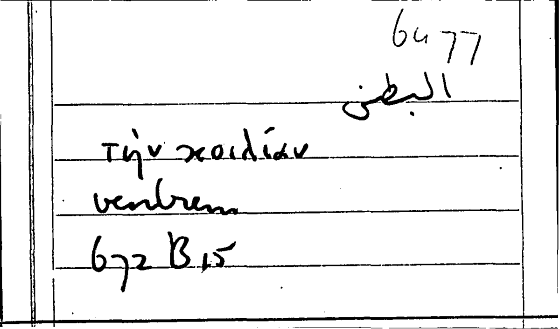 6477
البطن
τὴν κοιλίαν
ventrem
672 B 15